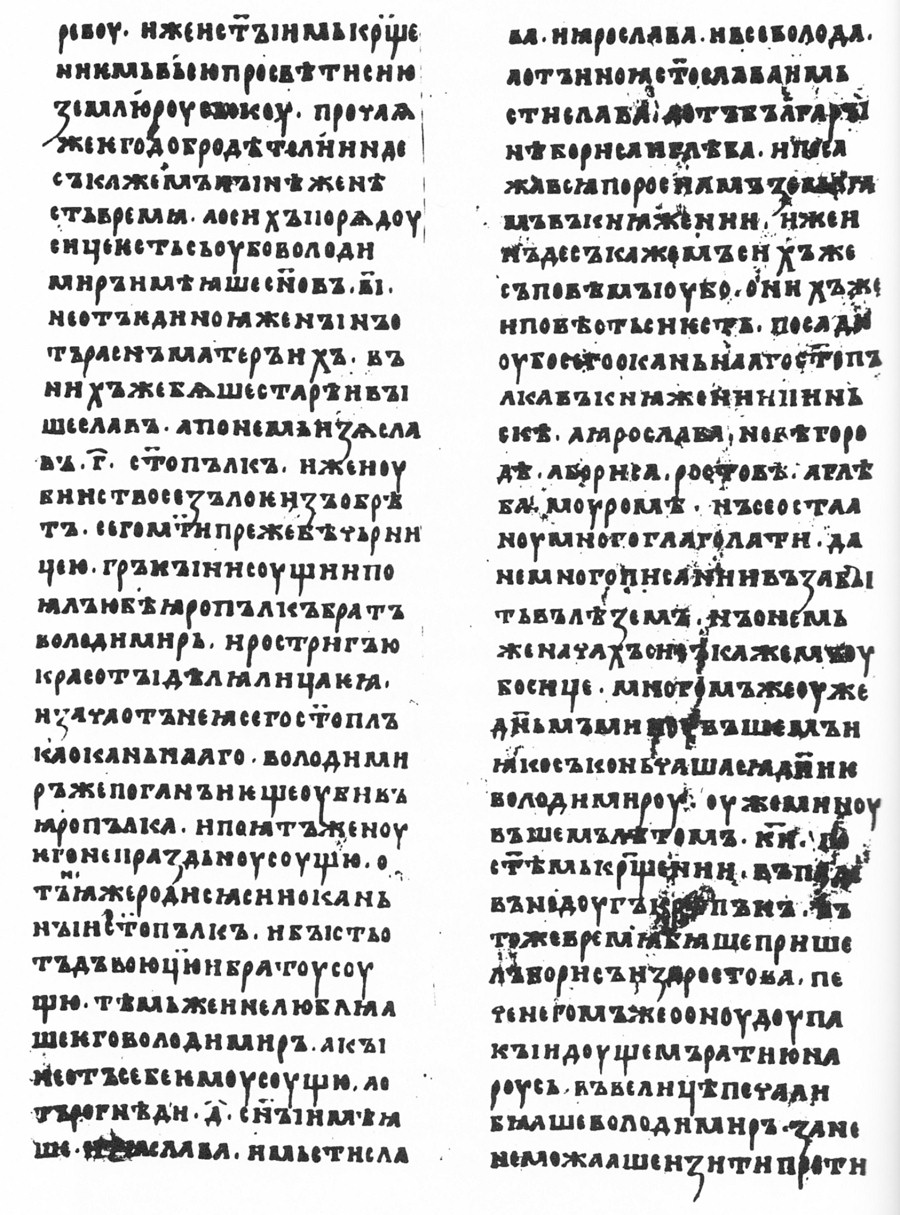 ревоу. и женст҃ꙑимь кр҃ще
ниимь вьсю просвѣти сию
землю роусьскоу. прочаꙗ
же ѥго добродѣтели инде
съкажемъ. нꙑнѣ же нѣ
сть времѧ. а о сихъ по рѧдоу
сице ѥсть. сь оубо володи
миръ имѣꙗше сн҃овъ. в҃і.
не отъ ѥдиноꙗ женꙑ нъ о
тъ раснъ матеръ ихъ. въ
нихъ же бѧше старѣи вꙑ
шеславъ. а по немь изѧсла
въ. г҃. ст҃опълкъ. иже и оу
бииство се зълоѥ изъобрѣ
тъ. сего мт҃и преже бѣ чьрни
цею. гръкꙑни соущи и по
ꙗлъ ю бѣ ꙗропълкъ братъ
володимирь. и рострига ю
красотꙑ дѣлꙗ лица ѥꙗ.
и зача отъ неꙗ сего ст҃опъл
ка оканьнааго. володими
ръ же поганъ ѥще оубивъ
ꙗропълка. и поꙗтъ женоу
ѥго непраздьноу соущю. о
тъ неꙗже родисѧ сии окань
нꙑи ст҃опълкъ. и бꙑсть о
тъ двою оц҃ю и братоу соу
щю. тѣмь же и не люблꙗа
ше ѥго володимиръ. акꙑ
не отъ себе ѥмоу соущю. а о
тъ рогнѣди. д҃. сн҃ꙑ имѣꙗ
ше. изѧслава. и мьстисла
ва. и ꙗрослава. и всеволода.
а отъ иноꙗ ст҃ослава и мь
стислава. а отъ българꙑ
нѣ бориса и глѣба. и поса
жа всѧ по роснамъ землꙗ
мъ въ кнѧжении. иже ин
ъде съкажемъ сихъ же
съповѣмꙑ оубо. о нихъже
и повѣсть си ѥсть. посади
оубо сего оканьнааго ст҃опъ
лка въ кнѧжении пинь
скѣ. а ꙗрослава новѣгоро
дѣ. а бориса. ростовѣ. а глѣ
ба. моуромѣ. нъ се оста
ноу много глаголати. да
не многописании въ забꙑ
ть вълѣземъ. нъ о немь
же начахъ си съкажемъ оу
бо сице. многомъ же оуже
дн҃ьмъ миноувъшемъ и
ꙗко съконьчашасѧ дн҃иѥ
володимироу. оуже миноу
въшемъ лѣтомъ. к҃и. по
ст҃ѣмь кр҃щении. въпаде
въ недоугъ крѣпъкъ. въ
то же времѧ бꙗше прише
лъ борисъ изд ростова. пе
ченегомъ же о онноудоу па
кꙑ идоущемъ ратию на
роусь. въ велицѣ печали
бꙗаше володимиръ. зане
не можааше изити проти